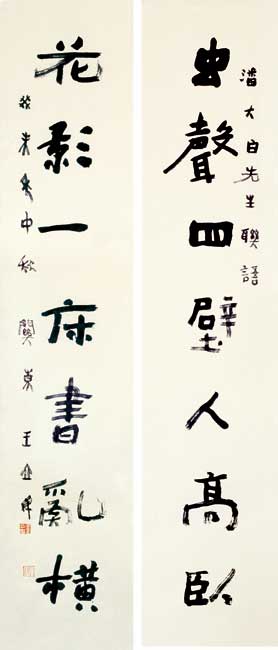 潘大白先生聯語
虫聲四壁人高臥
花影一床書亂橫
癸未年中秋關東王